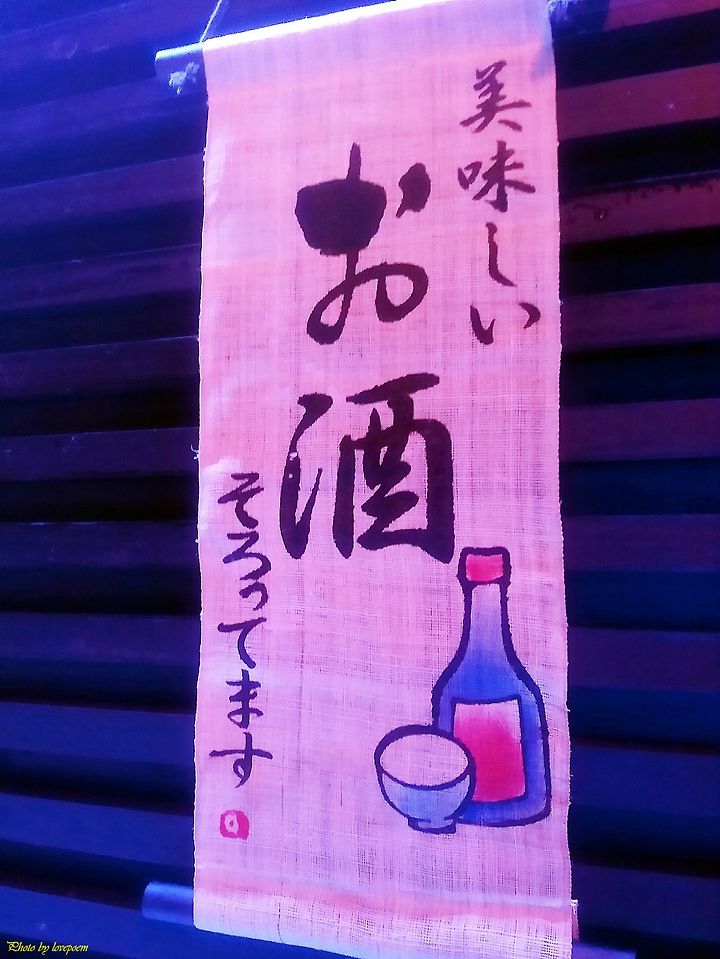 美味しい
お酒
そろってます
Photo by lovepoem